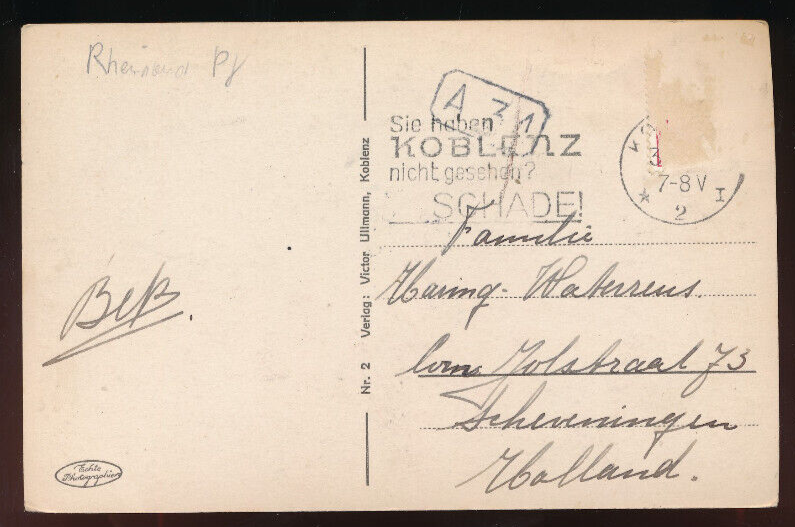 Rheinland Pf
Beß.
Echte
Photographie
Nr. 2 Verlag: Victor Ullmann, Koblenz
A 31
Sie haben
KOBLENZ
nicht gesehen?
SCHADE!
KO
7-8 V
* 2 I
Familie
Haring-Waterreus.
Com. Jolstraat 73
Scheveningen
Holland.